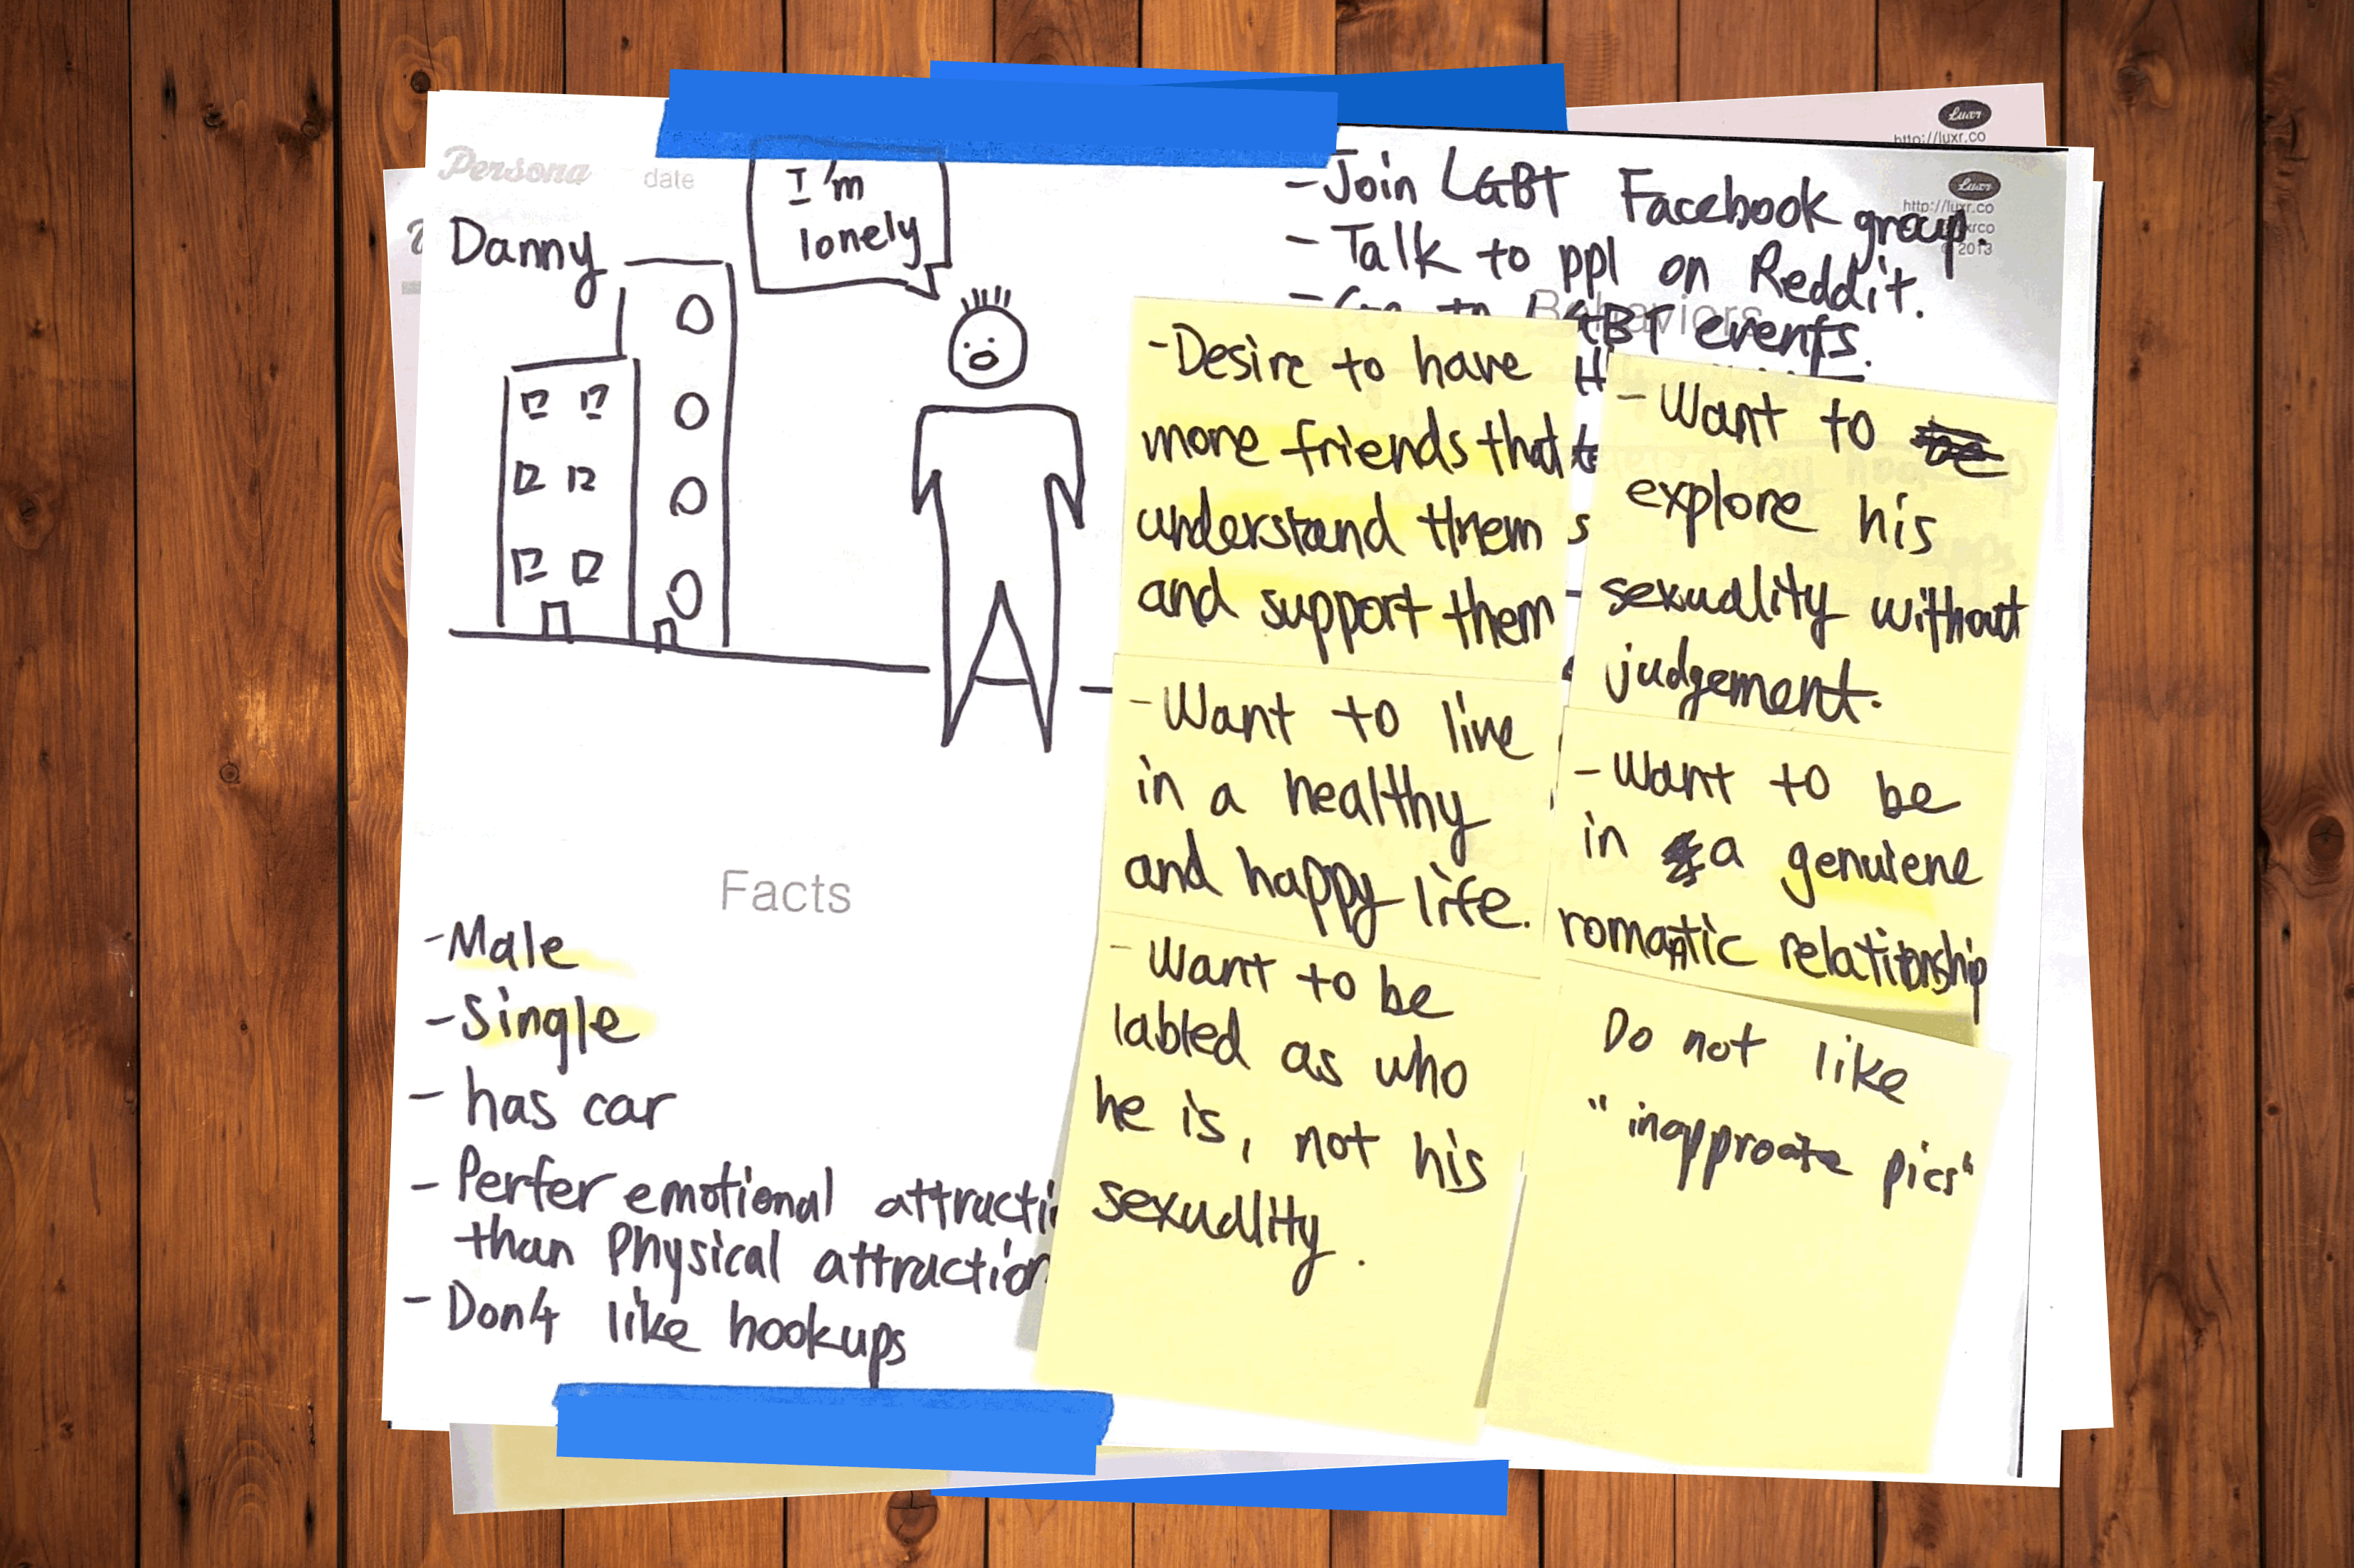 Persona date
Danny
I'm
lonely
Facts
-Male
-Single
- has car
- Perfer emotional
than Physical attraction
- Don't like hookups
Luxr
http://luxr.co
Luxr
http://luxr.co
2013
-Join LGBT Facebook group.
- Talk to ppl on Reddit.
- Go to LGBT events.
Behaviors
-Desire to have
more friends that
understand them
and support them
-Want to live
in a healthy
and happy life.
-Want to be
labled as who
he is, not his
sexuality.
-Want to
explore his
sexuality without
judgement.
-Want to be
in a genuiene
romantic relationship
Do not like
"inapproate pics"